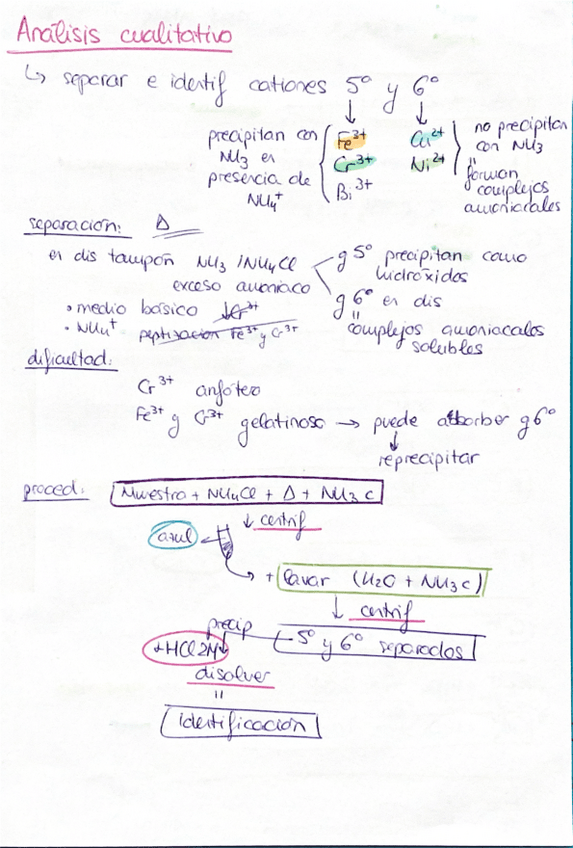 Análisis cualitativo
↳ separar e identif cationes 5º y 6º
precipitan con NH3 en presencia de NH4+
Fe3+
Cr3+
Bi3+
Cu2+
Ni2+
no precipitan con NH3
"
forman complejos amoniacales
separación: Δ
en dis tampón NH3/NH4Cl
exceso amoniaco
g 5º precipitan como hidróxidos
g 6º en dis
"
complejos amoniacales solubles
• medio básico ↓Cr3+
• NH4+ peptización Fe3+ y Cr3+
dificultad:
Cr3+ anfótero
Fe3+ y Cr3+ gelatinoso → puede absorber g 6º
↓
reprecipitar
proced: Muestra + NH4Cl + Δ + NH3 c
↓ centrif
azul
+ lavar (H2O + NH3 c)
↓ centrif
precip
5º y 6º separados
+HCl 2M
disolver
"
identificación